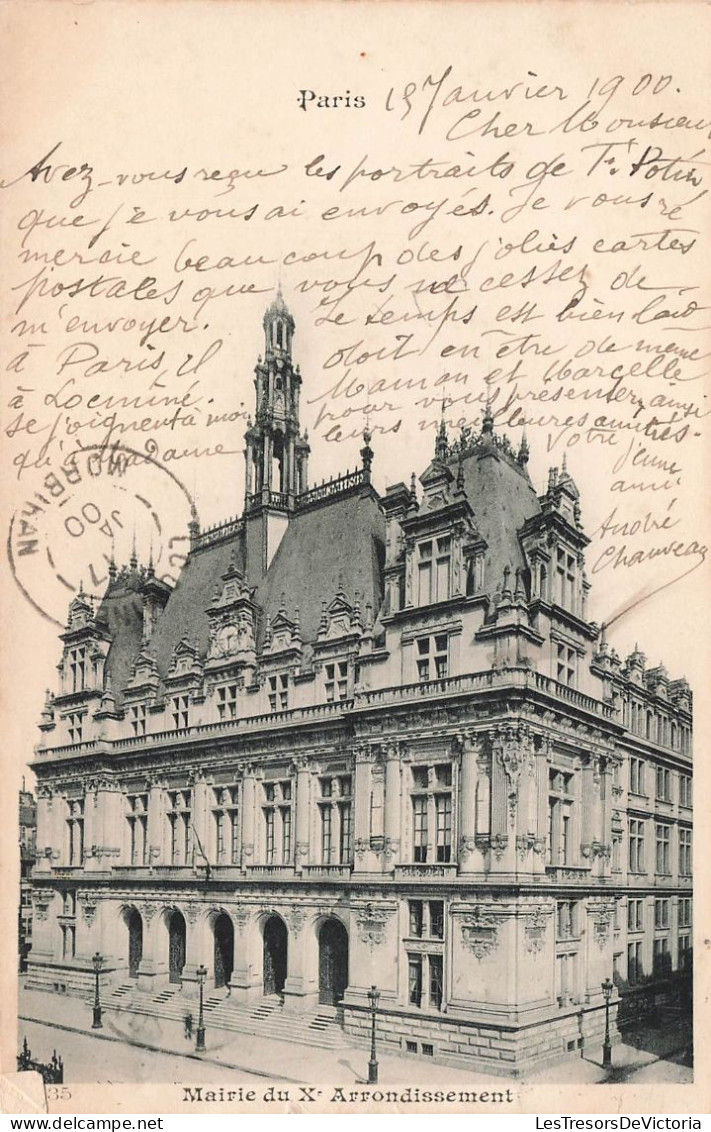 Paris 15 Janvier 1900.
Cher Monsieur
Avez-vous reçu les portraits de F. Potin
que je vous ai envoyés. Je vous ré
mercie beaucoup des jolies cartes
postales que vous ne cessez de
m'envoyer. Le temps est bien laid
à Paris, il doit en être de même
à Locminé. Maman et Marcelle
se joignent à moi pour vous présenter, ainsi
qu'à Madame leurs meilleures amitiés.
Votre
jeune
ami
André
Chauveau
MORBIHAN
17
JA
00
35
Mairie du Xe Arrondissement
LesTresorsDeVictoria
© DELCAMPE.NET / LesTresorsDeVictoria